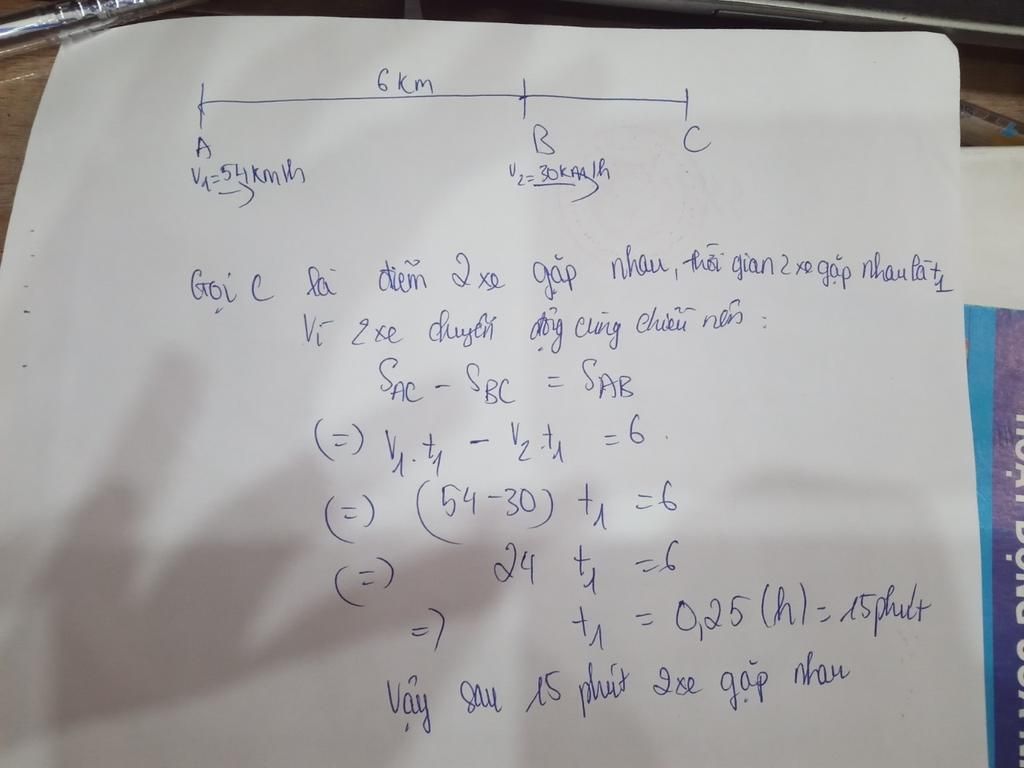 6 km
A B C
V₁=54km/h V₂=30km/h
Gọi C là điểm 2 xe gặp nhau, thời gian 2 xe gặp nhau là t₁
Vì 2 xe chuyển động cùng chiều nên :
S_AC - S_BC = S_AB
(=) V₁.t₁ - V₂.t₁ = 6.
(=) (54-30) t₁ = 6
(=) 24 t₁ = 6
=) t₁ = 0,25 (h) = 15 phút
Vậy sau 15 phút 2 xe gặp nhau
HOẠT ĐỘNG